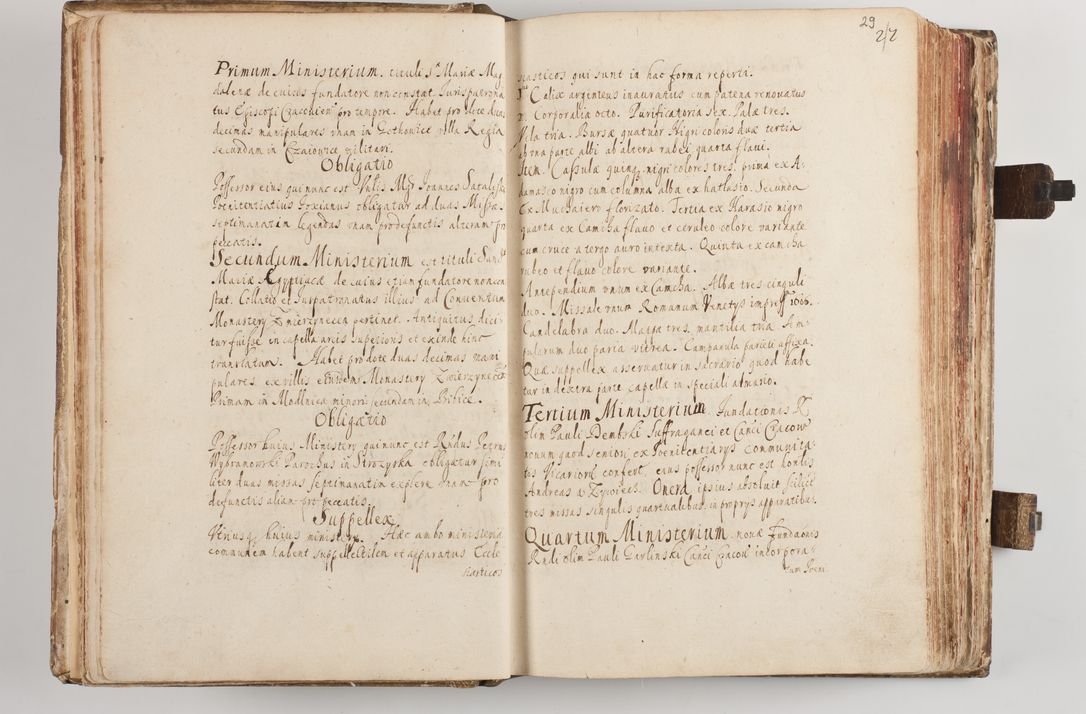 Primum Ministerium. tituli S. Mariæ Mag
dalenæ de cuius fundatore non constat. Jurispatrona
tus Episcopi Cracovien pro tempore. Habet pro dote duas
decimas manipulares vnam in Gotkowice villa Regia
secundam in Czaiowice militari.
Obligatio
Possessor eius qui nunc est Vnlis Mgr Joannes
Poenitentiarius obligatur ad duas Missas
septimanatim legendas vnam pro defunctis alteram pro
peccatis.
Secundum Ministerium est tituli Sanctæ
Mariæ Ægyptiacæ de cuius etiam fundatore non con
stat. Collatio et Juspatronatus illius ad Conventum
Monastery Zwierzynecen pertinet. Antiquitus dici
tur fuisse in capella arcis superioris et exinde hinc
translatum. Habet pro dote duas decimas mani
pulares, ex villis eiusdem Monastery Zwierzynecen
Primam in Modlnica minori secundam in Bibice.
Obligatio
Possessor huius Ministery qui nunc est Rndus Petrus
Wybranowski Parochus in obligatur simi
liter duas missas septimanatim explere vnam pro
defunctis aliam pro peccatis.
Suppellex
Vtriusq huius ministery. Hæc ambo ministeria
communem habent suppellectilem et apparatus Eccle
siasticos
29
22
siasticos qui sunt in hac forma reperti.
Calix argenteus inauratus cum patena renovatus
Corporalia octo. Purificatoria sex. Palæ tres.
Vela tria. Bursæ quatuor Nigri coloris duæ tertia
ab vna parte albi ab altera rubei quarta flavi.
Item. Casulæ quinq. nigri coloris tres. prima ex A
damasco nigro cum columna alba ex hatlasio. Secunda
Ex Muchaiero florizato. Tertia ex Harasio nigro
quarta ex Camcha flavo et ceruleo colore variante
cum cruce a tergo auro intexta. Quinta ex camcha
rubeo et flavo colore variante.
Antependium vnum ex Camcha. Albæ tres cinguli
duo. Missale vnum Romanum Venetys impress 1606.
Candelabra duo. Mappæ tres, mantilia tria. Am
pularum duo paria vitrea. Campanula parieti affixa.
Quæ suppellex asservatur in sacrario quod habe
tur in dextra parte capellæ in speciali armario.
Tertium Ministerium. Fundationis R
olim Pauli Dembski Suffraganei et Canci Cracov
novum quod seniori ex Poenitentiarys communita
tis Vicariorum confert, eius possessor nunc est hondis
Andreas a Zywiec. Onera ipsius absolvit scilicet
tres missas singulis quartualibus, in proprys apparatibus.
Quartum Ministerium. novæ fundaonis
Rndi olim Pauli Canci Cracov incorpora
tum Poeni